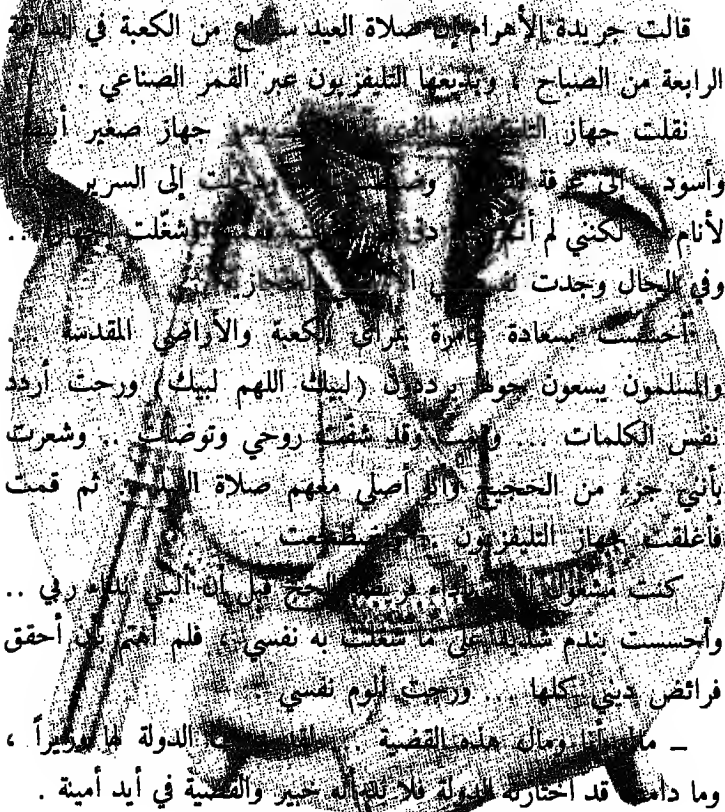 قالت جريدة الأهرام إن صلاة العيد ستذاع من الكعبة في الساعة
الرابعة من الصباح ، ويذيعها التليفزيون عبر القمر الصناعي .
نقلت جهاز جهاز صغير أبيض
وأسود .. إلى غرفة إلى السرير
لأنام .. لكنني لم أنم ..
وفي الحال وجدت
أحسست بسعادة غامرة الكعبة والأراضي المقدسة ...
والمسلمون يسعون حولها يرددون (لبيك اللهم لبيك) ورحت أردد
نفس الكلمات ... وقمت وقد شفّت روحي وتوضأت .. وشعرت
بأنني جزء من الحجيج وأنا أصلي معهم صلاة العيد .. ثم قمت
فأغلقت جهاز التليفزيون .. واضطجعت .
كنت الحج قبل أن ألبي نداء ربي ..
وأحسست بندم شديد على ما شغلت به نفسي .. فلم أهتم بأن أحقق
فرائض ديني كلها ... ورحت ألوم نفسي :
ــ مالي أنا ومال هذه القضية .. الدولة لها وزيراً ،
وما دامت قد اختارته الدولة فلا خبير والقضية في أيد أمينة .